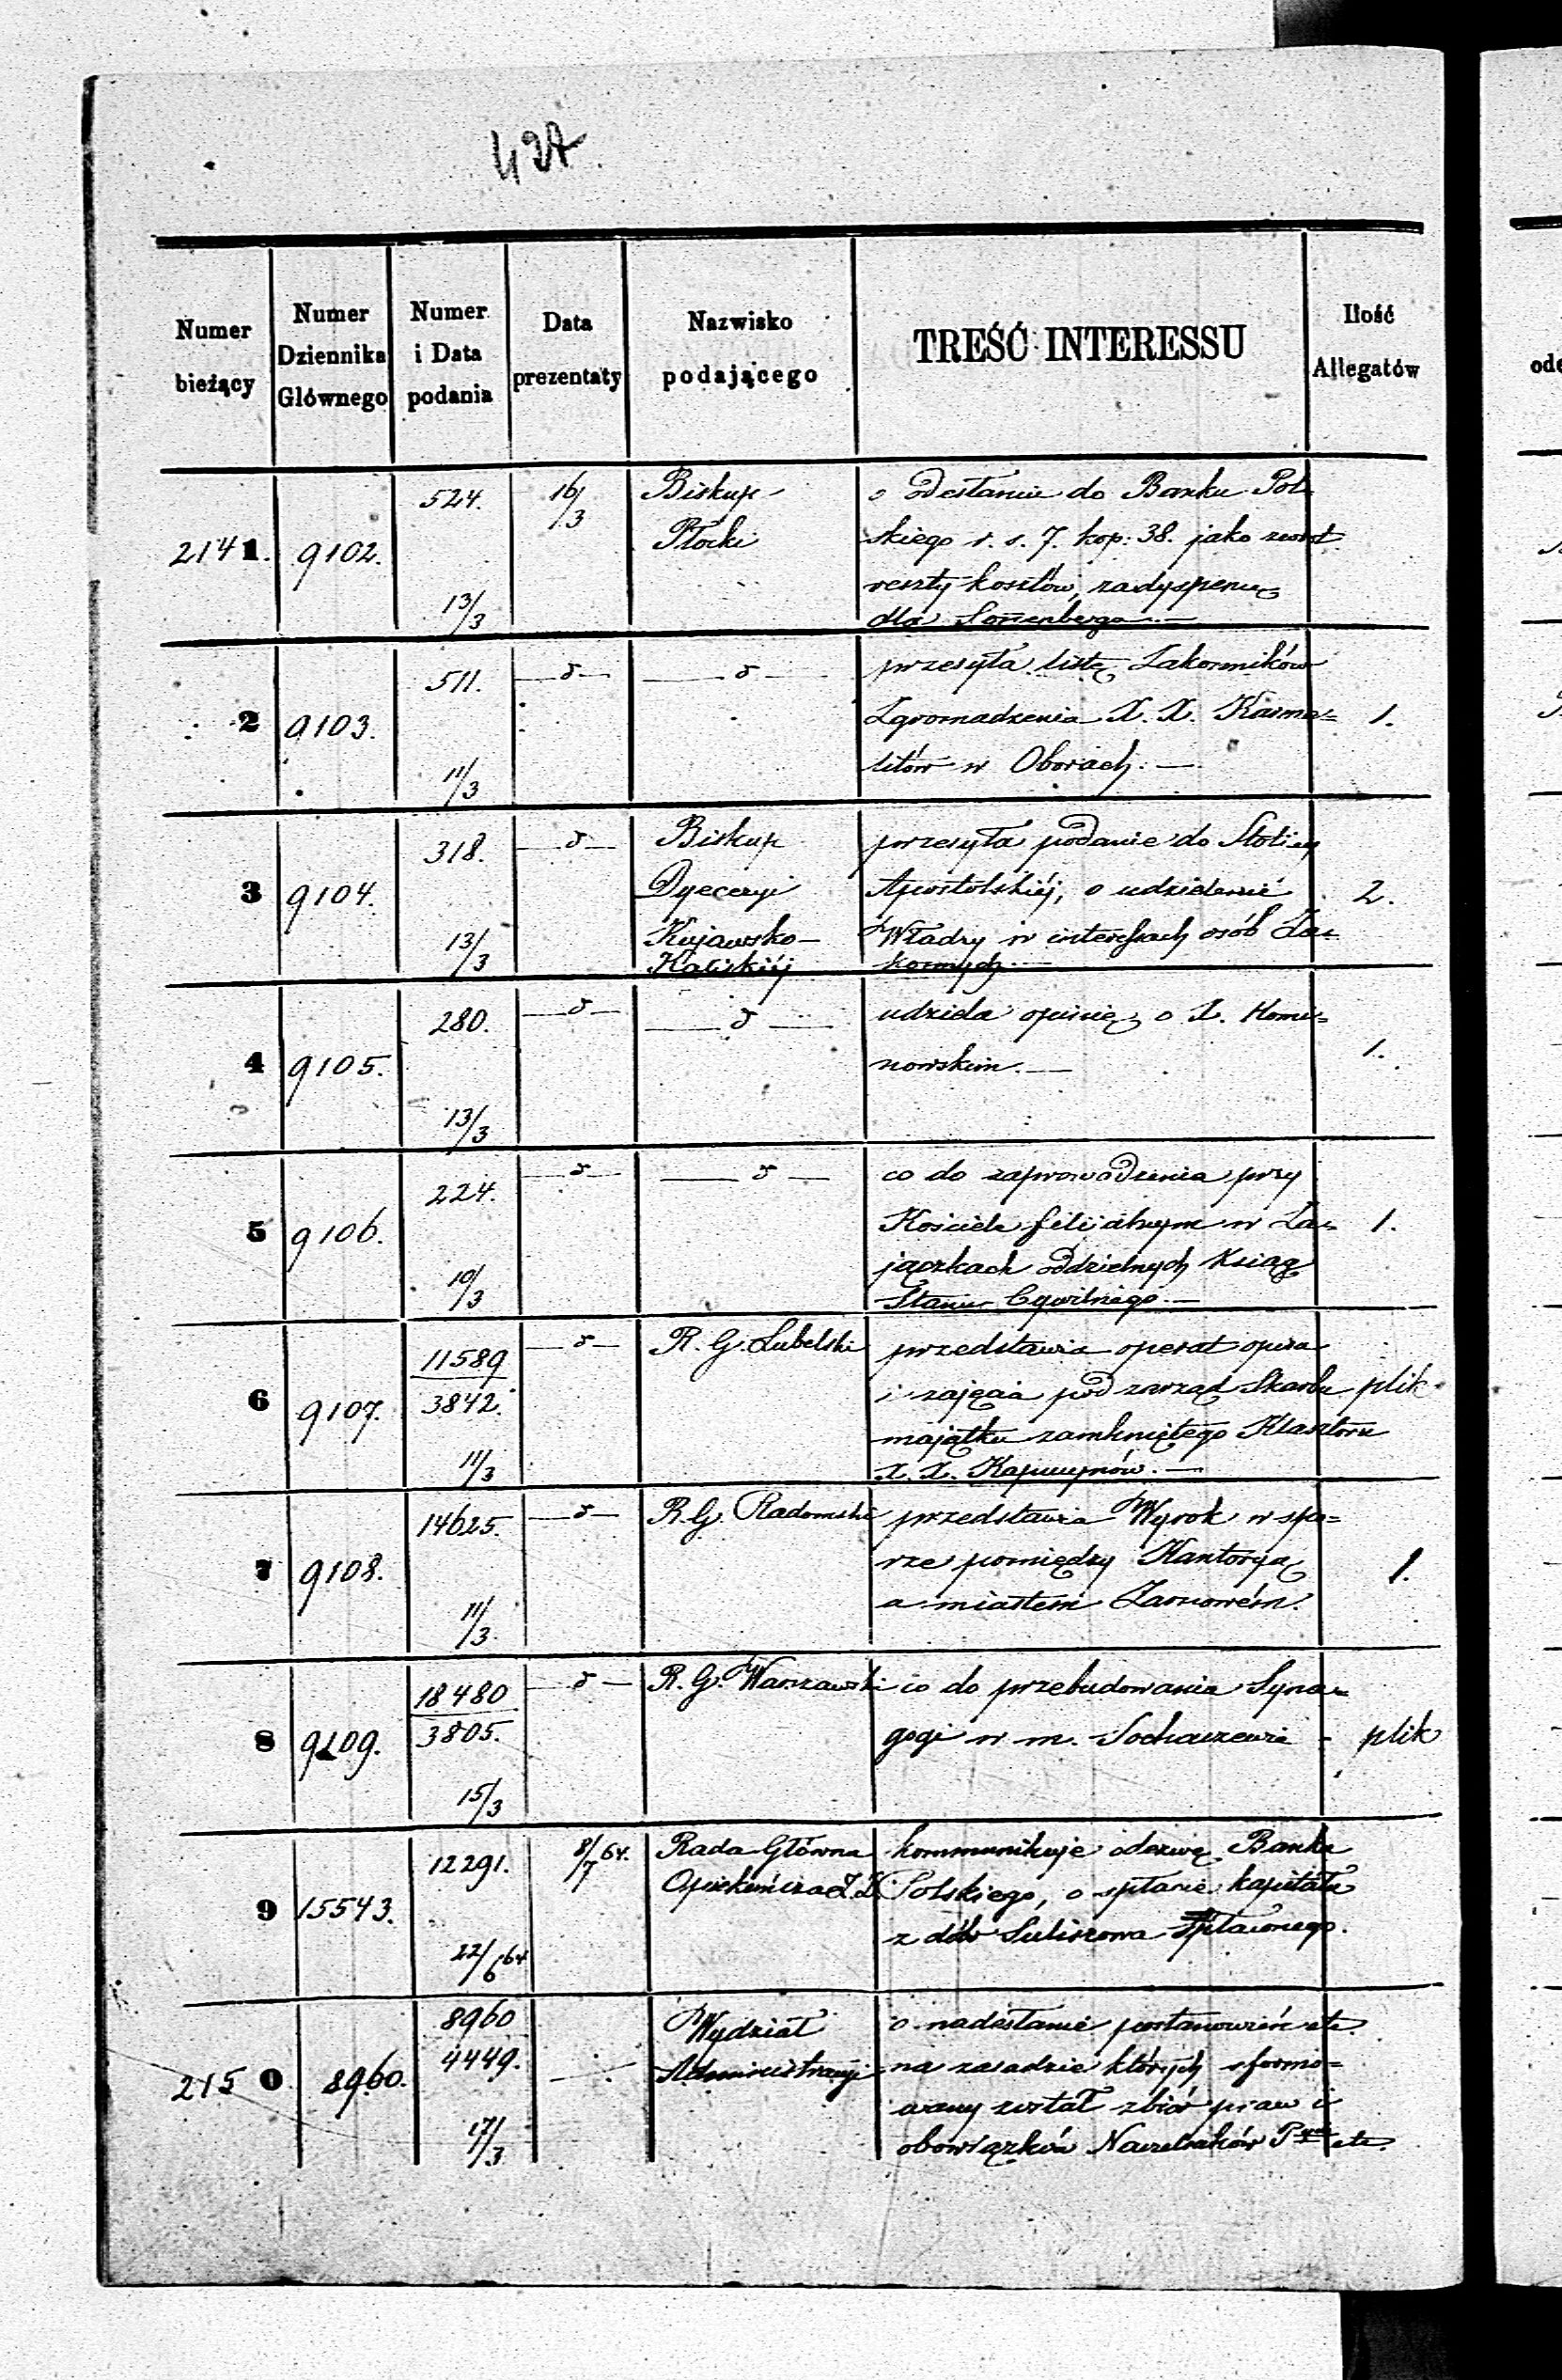 427.
Numer bieżący
Numer Dziennika Głównego
Numer i Data podania
Data prezentaty
Nazwisko podającego
TREŚĆ INTERESSU
Ilość Allegatów
2141. 9102. 524. 13/3 16/3
Biskup
Płocki
o odesłanie do Banku Pol-
skiego r. s. 7. kop: 38. jako zwrot
reszty kosztów, za dyspensę
dla Sonenberga. —
2 9103. 511. 11/3 — δ — — δ —
przesyła listę Zakonników
Zgromadzenia X. X. Karme=
litów w Oborach. —
1.
3 9104. 318. 13/3 — δ —
Biskup
Dyecezyi
Kujawsko-
Kaliskiéj
przesyła podanie do Stolicy
Apostolskiéj, o udzielenié
Władzy w interessach osób Za=
konnych. —
2.
4 9105. 280. 13/3 — δ — — δ —
udziela opinię o X.
nowskim. —
1.
5 9106. 224. 10/3 — δ — — δ —
co do zaprowadzenia przy
Kościele filijalnym w Za=
jączkach oddzielnych Ksiąg
Stanu Cywilnego. —
1.
6 9107. 11589 3842. 11/3 — δ —
R. G. Lubelski
przedstawia operat
i zajęcia pod zarząd Skarbu
majątku zamkniętego Klasztoru
X. X. Kapucynów. —
plik
7 9108. 14625. 11/3 — δ —
R. G. Radomski
przedstawia Wyrok w spo=
rze pomiędzy Kantoryą
a miastem Żarnowém.
1.
8 9109. 18480 3805. 15/3 — δ —
R. G. Warszawski
co do przebudowania Syna=
gogi w m. Sochaczewie -
plik
9 15543. 12291. 22/6 64 8/7 64.
Rada Główna
Opiekuńcza Z. D.
kommunikuje odezwę Banku
Polskiego, o spłacie kapitału
z dóbr Suliszowa spłaconego.
2150 8960. 8960 4449. 17/3
Wydział
Administracyi
o nadesłanie postanowień etc.
na zasadzie których sformo=
wany został zbiór praw i
obowiązków Naczelników etc.